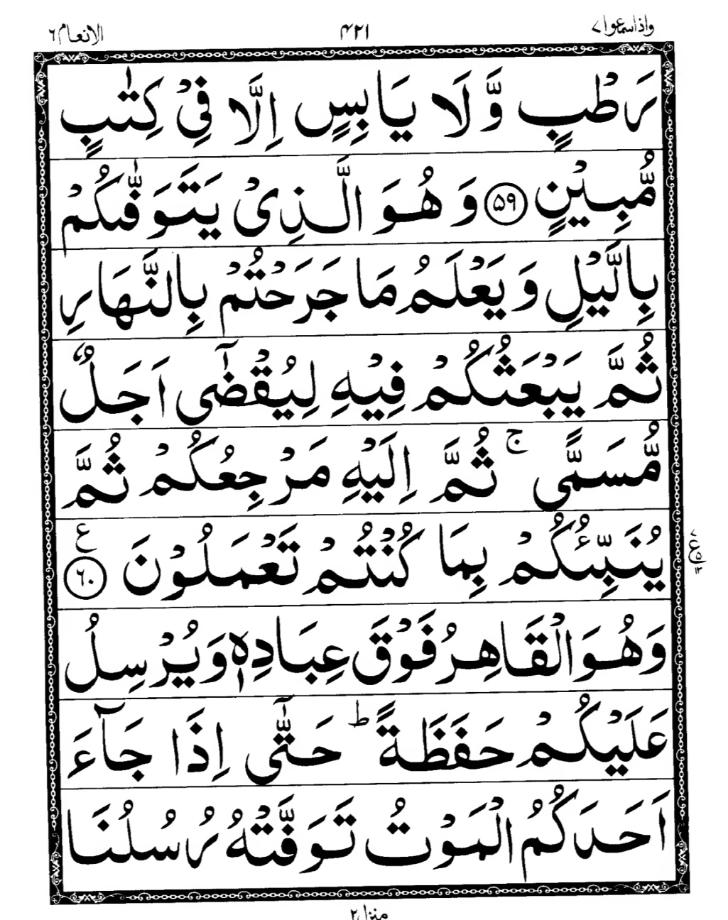 الانعام ٦ ۴۲۱ واذاسمعوا ٧
رَطْبٍ وَّلَا يَابِسٍ اِلَّا فِيْ كِتٰبٍ
مُّبِيْنٍ ۝۵۹ وَهُوَ الَّذِيْ يَتَوَفّٰىكُمْ
بِالَّيْلِ وَيَعْلَمُ مَا جَرَحْتُمْ بِالنَّهَارِ
ثُمَّ يَبْعَثُكُمْ فِيْهِ لِيُقْضٰٓى اَجَلٌ
مُّسَمًّى ۚ ثُمَّ اِلَيْهِ مَرْجِعُكُمْ ثُمَّ
يُنَبِّئُكُمْ بِمَا كُنْتُمْ تَعْمَلُوْنَ ۝۶۰ ع
وَهُوَ الْقَاهِرُ فَوْقَ عِبَادِهٖ وَيُرْسِلُ
عَلَيْكُمْ حَفَظَةً ؕ حَتّٰٓى اِذَا جَآءَ
اَحَدَكُمُ الْمَوْتُ تَوَفَّتْهُ رُسُلُنَا
منزل ٢